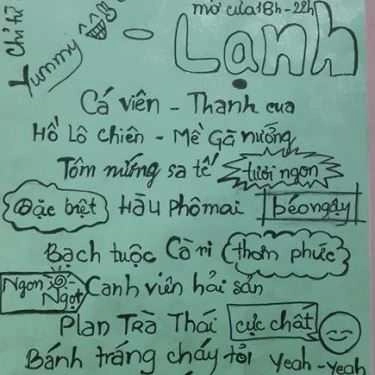 Chỉ từ
Yummy
mở cửa 18h - 22h
Lạnh
Cá viên - Thanh cua
Hồ Lô chiên - Mề Gà nướng
Tôm nướng sa tế tươi ngon
Đặc biệt Hàu Phômai béo ngậy
Bạch tuộc Cà ri thơm phức
Ngon Ngọt Canh viên hải sản
Plan Trà Thái cực chất
Bánh tráng cháy tỏi Yeah - yeah